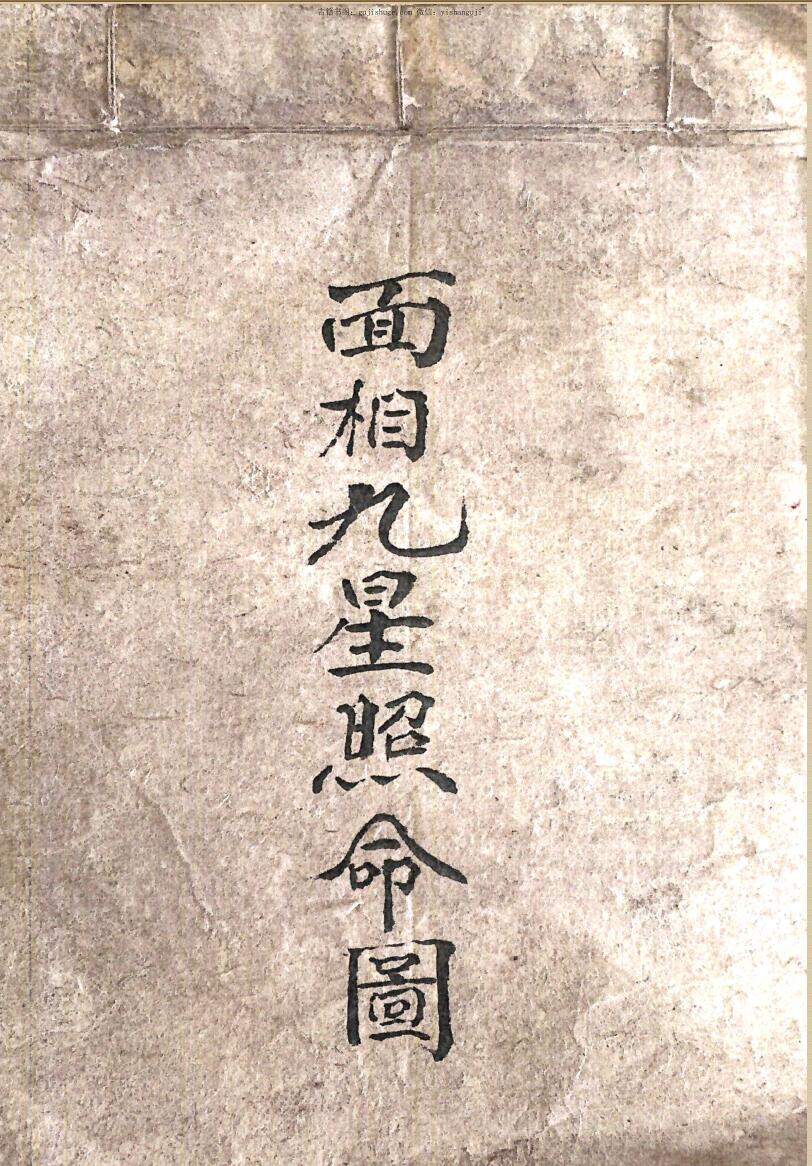 古籍书阁：gujishuge.com 微信：yishanguji
面相九星照命圖